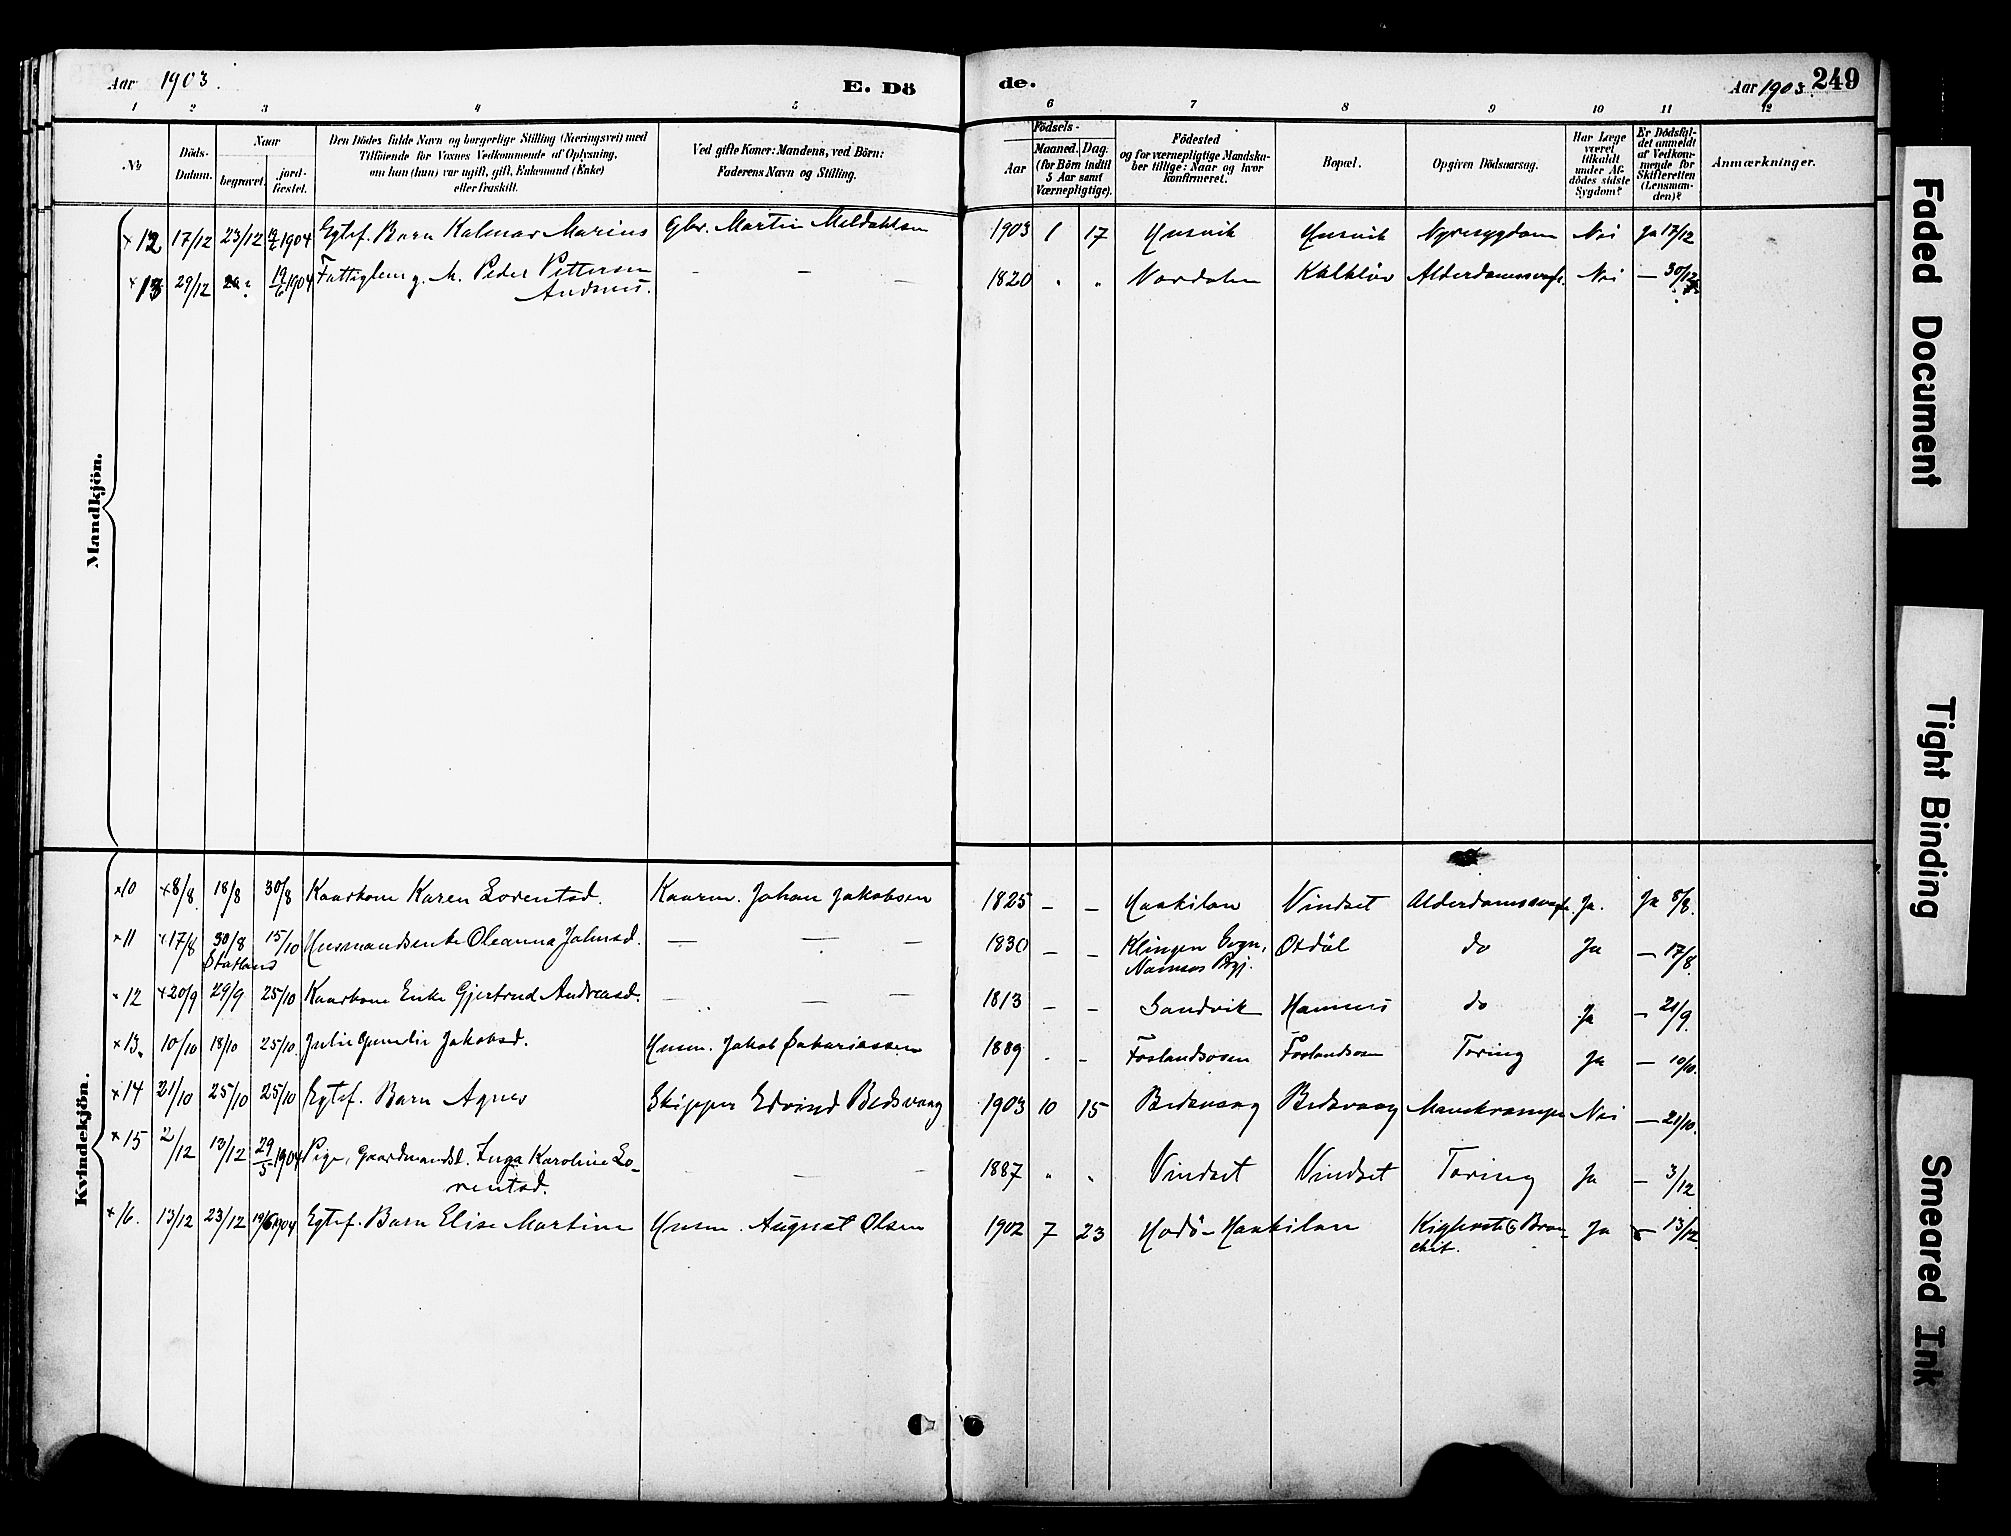 Aar 1903.
E. Dö
de.
Aar 1903.
249
1 2 3 4 5 6 7 8 9 10 11 12
No
Döds-Datum.
Naar
begravet.
jord-fæstet.
Den Dödes fulde Navn og borgerlige Stilling (Næringsvei) med
Tilföiende for Voxnes Vedkommende af Oplysning,
om han (hun) var ugift, gift, Enkemand (Enke)
eller fraskilt.
Ved gifte Koner: Mandens, ved Börn:
Faderens Navn og Stilling.
Födsels-
Aar
Maaned. Dag.
(for Börn indtil
5 Aar samt
Værnepligtige).
Födested
og for værnepligtige Mandska-
ber tillige: Naar og hvor
konfirmeret.
Bopæl.
Opgiven Dödsaarsag.
Har Læge
været
tilkaldt
under Af-
dödes sidste
Sygdom?
Er Dödsfal-
det anmeldt
af Vedkom-
mende for
Skifteretten
(Lensman-
den)?
Anmærkninger.
Mandkjön.
×12 17/12 23/12 1904 Egtef. Barn Kalmar Marius Gbr. Martin Meldahlsen 1903 1 17 Husvik Husvik Nyresygdom Nei Ja 17/12
×13 29/12 1904 Fattiglem g. M. Peder Pettersen — — 1820 " " Nordalen Kalkløv Alderdomssvagh. Nei — 30/12
Andsnes.
Kvindekjön.
×10 ×8/8 18/8 30/8 Kaarkone Karen Lorentsd. Kaarm. Johan Jakobsen 1825 — — Haakilan Vindset Alderdomssvagh. Ja. Ja 8/8.
×11 ×17/8 30/8 15/10 Husmandsenke Oleanna Johnsd. — — — 1830 — — Klingen Sogn, Otdal do Ja — 17/8
Statland
Namsos Pgj.
×12 ×20/9 29/9 25/10 Kaarkone Enke Gjertrud Andreasd. — — — 1813 — — Sandvik Hamnes do Ja — 21/9.
×13. 10/10 18/10 25/10. Julie Gunelie Jakobsd. Husm. Jakob Sakariassen 1889 - - Forlandsosen Forlandsosen Tæring Ja — 10/10.
×14 21/10 25/10 25/10 Egtef. Barn Agnes Skipper Edvind Bedsvaag 1903 10 15 Bedsvaag Bedsvaag Mavekrampe Nei — 21/10.
×15 2/12 13/12 29/5 1904 Pige, Gaardmandsd. Inga Karoline Lo- — — 1887 " " Vindset Vindset Tæring Ja — 3/12
rentsd.
×16. 13/12 23/12 19/6 1904 Egtef. Barn Elise Martine Husm. August Olsen 1902 7 23 Hodö-Haakilan Kighoste & Bron- Ja 13/12.
chit.
Faded Document
Tight Binding
Smeared Ink